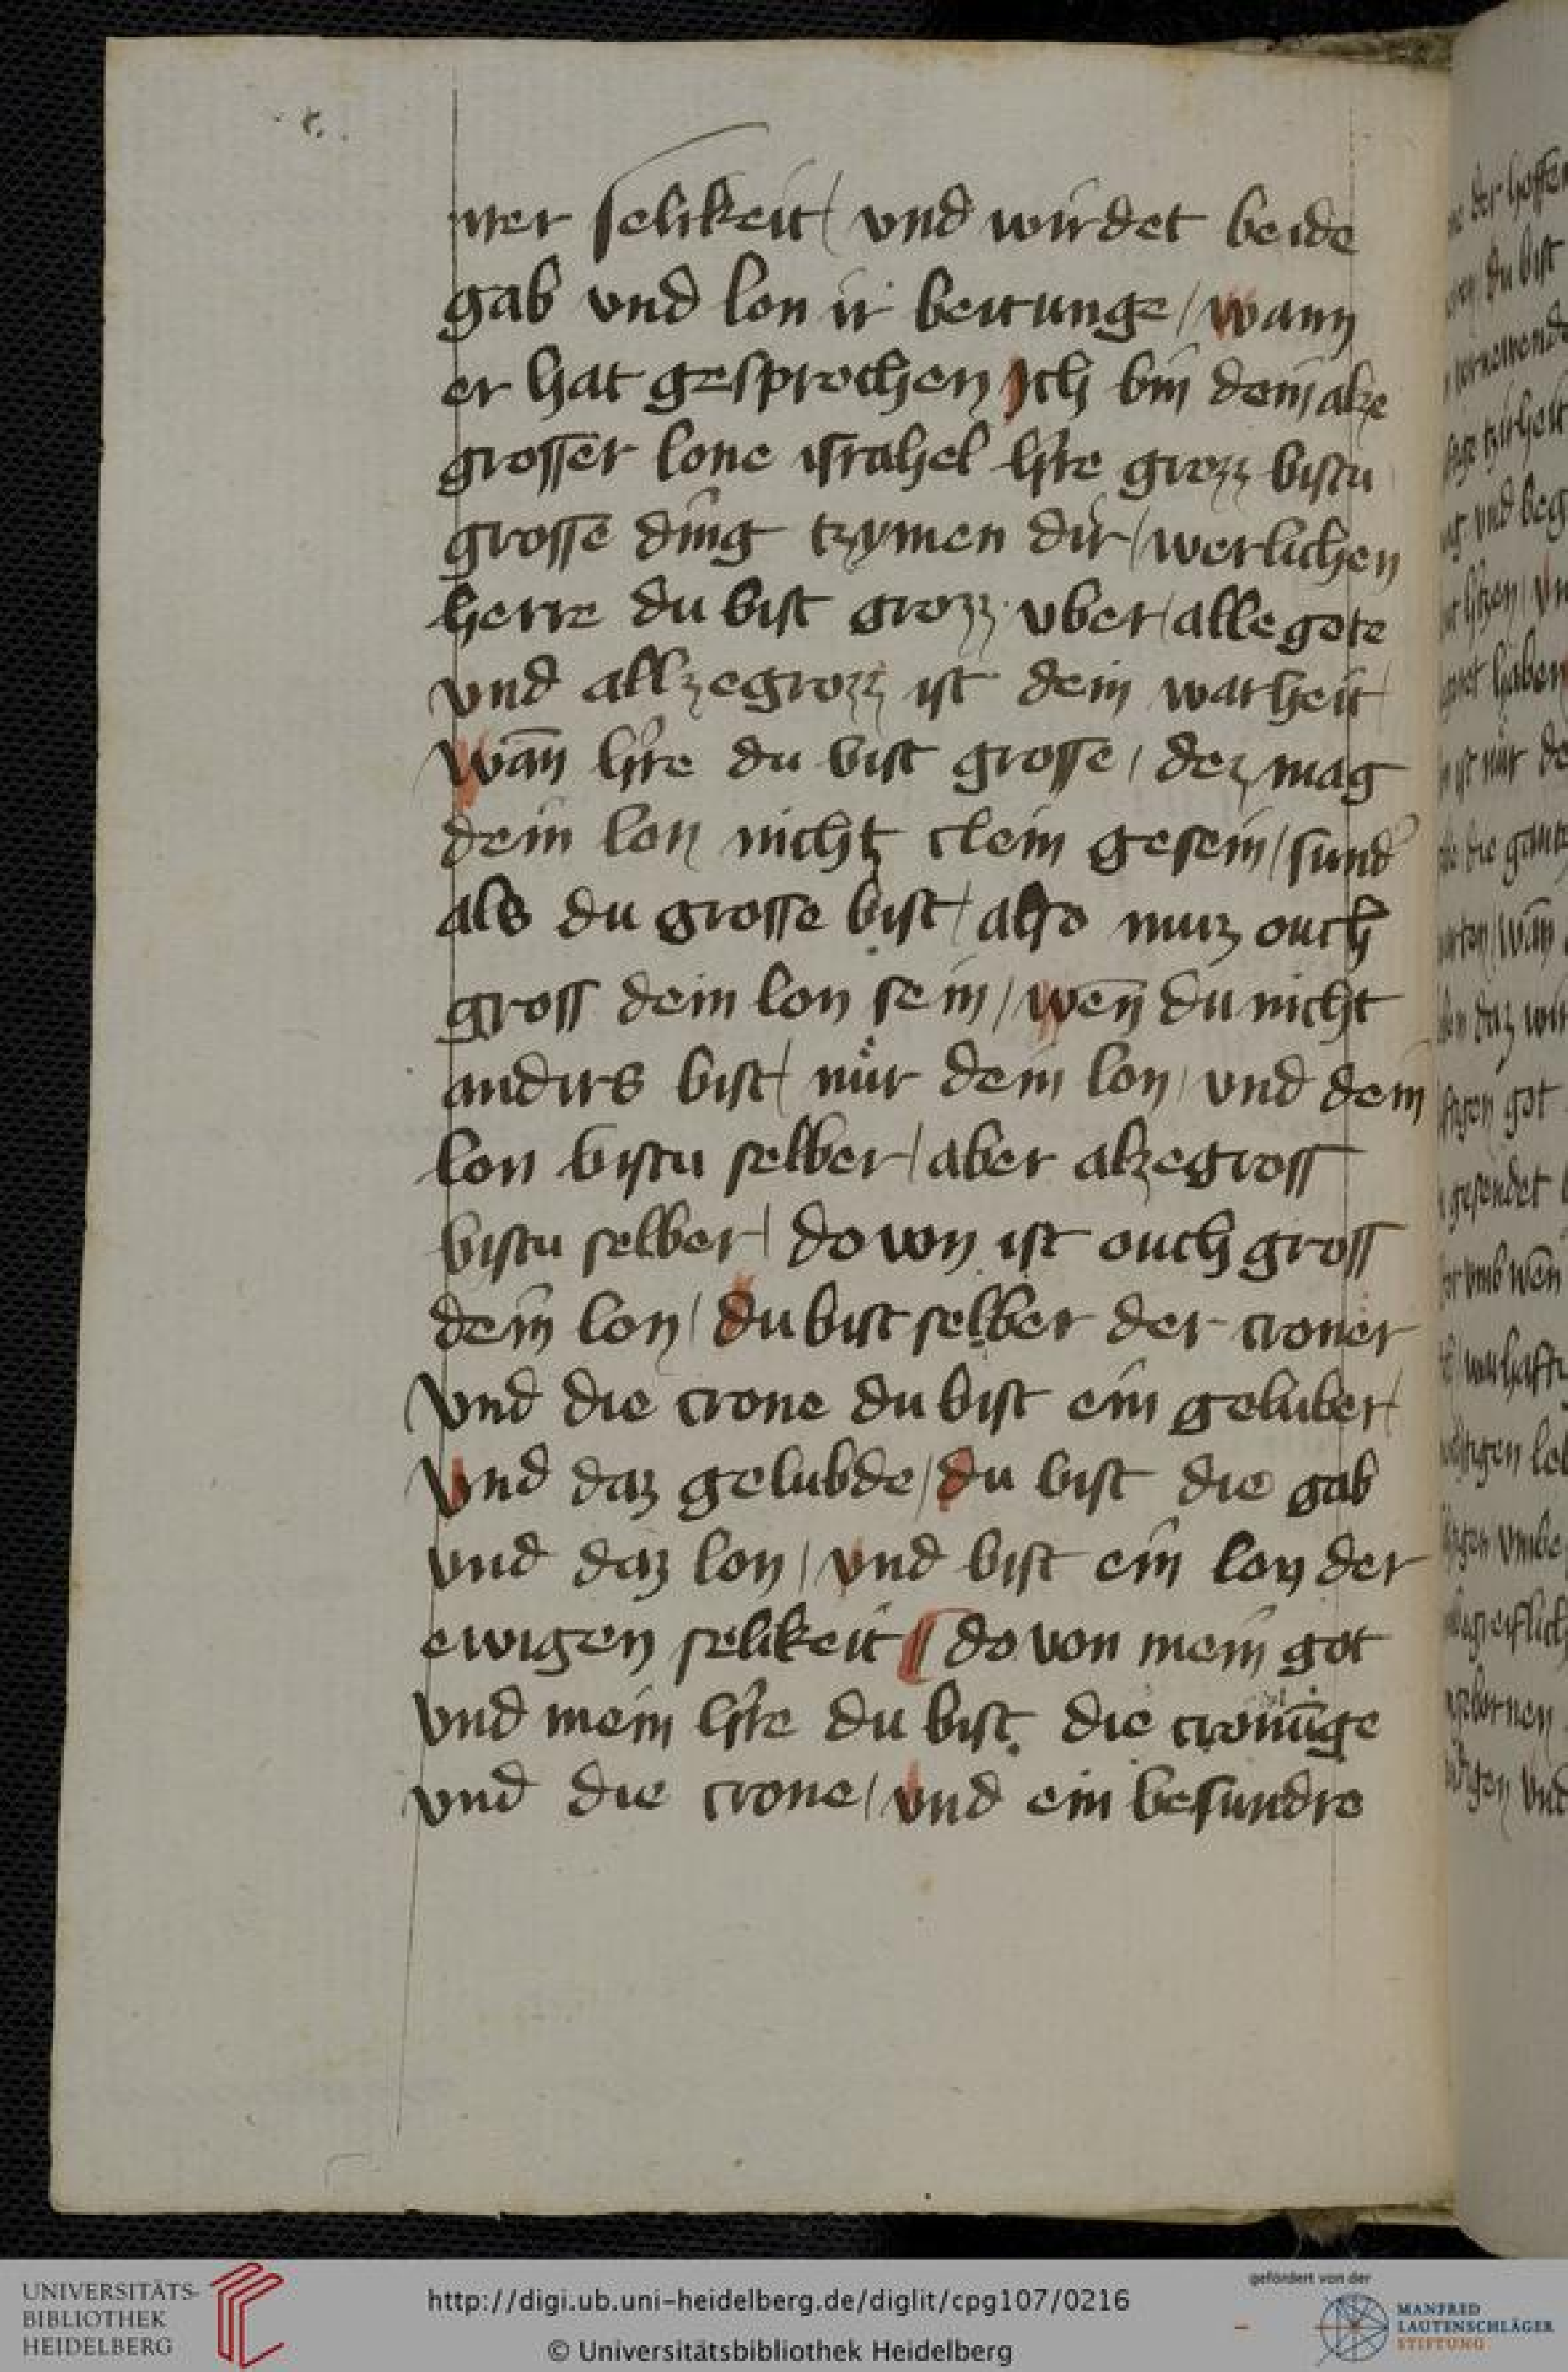 .r.
ner selikeit / vnd wirdet beide
gab vnd lon ir beitunge / wann
er hat gesprochen Ich bin dein alze
grosser lone israhel h're grozz bistu
grosse ding tzymen dir / werlichen
herre du bist grozz vber alle gote
vnd allzegrozz ist dein warheit
wan̄ h're du bist grosse / dez mag
dein lon nicht clein gesein / sund'
als du grosse bist / also muz ouch
gross dein lon sein / wen̄ du nicht
andirs bist / nür dein lon / vnd dein
lon bistu selber / aber alzegross
bistu selber / do von ist ouch gross
dein lon / du bist selber der croner
vnd die crone du bist ein geluber /
vnd daz gelubde / du bist die gab
vnd daz lon / vnd bist ein lon der
ewigen selikeit ¶ do von mein got
vnd mein h're du bist die cronūge
vnd die crone / vnd ein besundre
UNIVERSITÄTS-
BIBLIOTHEK
HEIDELBERG
http://digi.ub.uni-heidelberg.de/diglit/cpg107/0216
© Universitätsbibliothek Heidelberg
gefördert von der
MANFRED
LAUTENSCHLÄGER
STIFTUNG